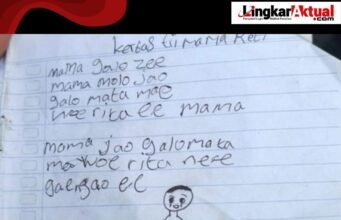 LingkarAktual
.com
kertas tii mama Reti
mama galo zee
mama molo jao
galo mata mae
woe rita ee mama
mama jao galo mata
mae woe rita nee
ee